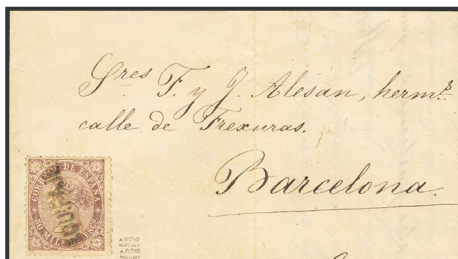 Sres F. y J. Alesan, herms.
calle de Frexuras.
Barcelona.
CORREOS DE ESPAÑA
A.ROIG
A.ROIG